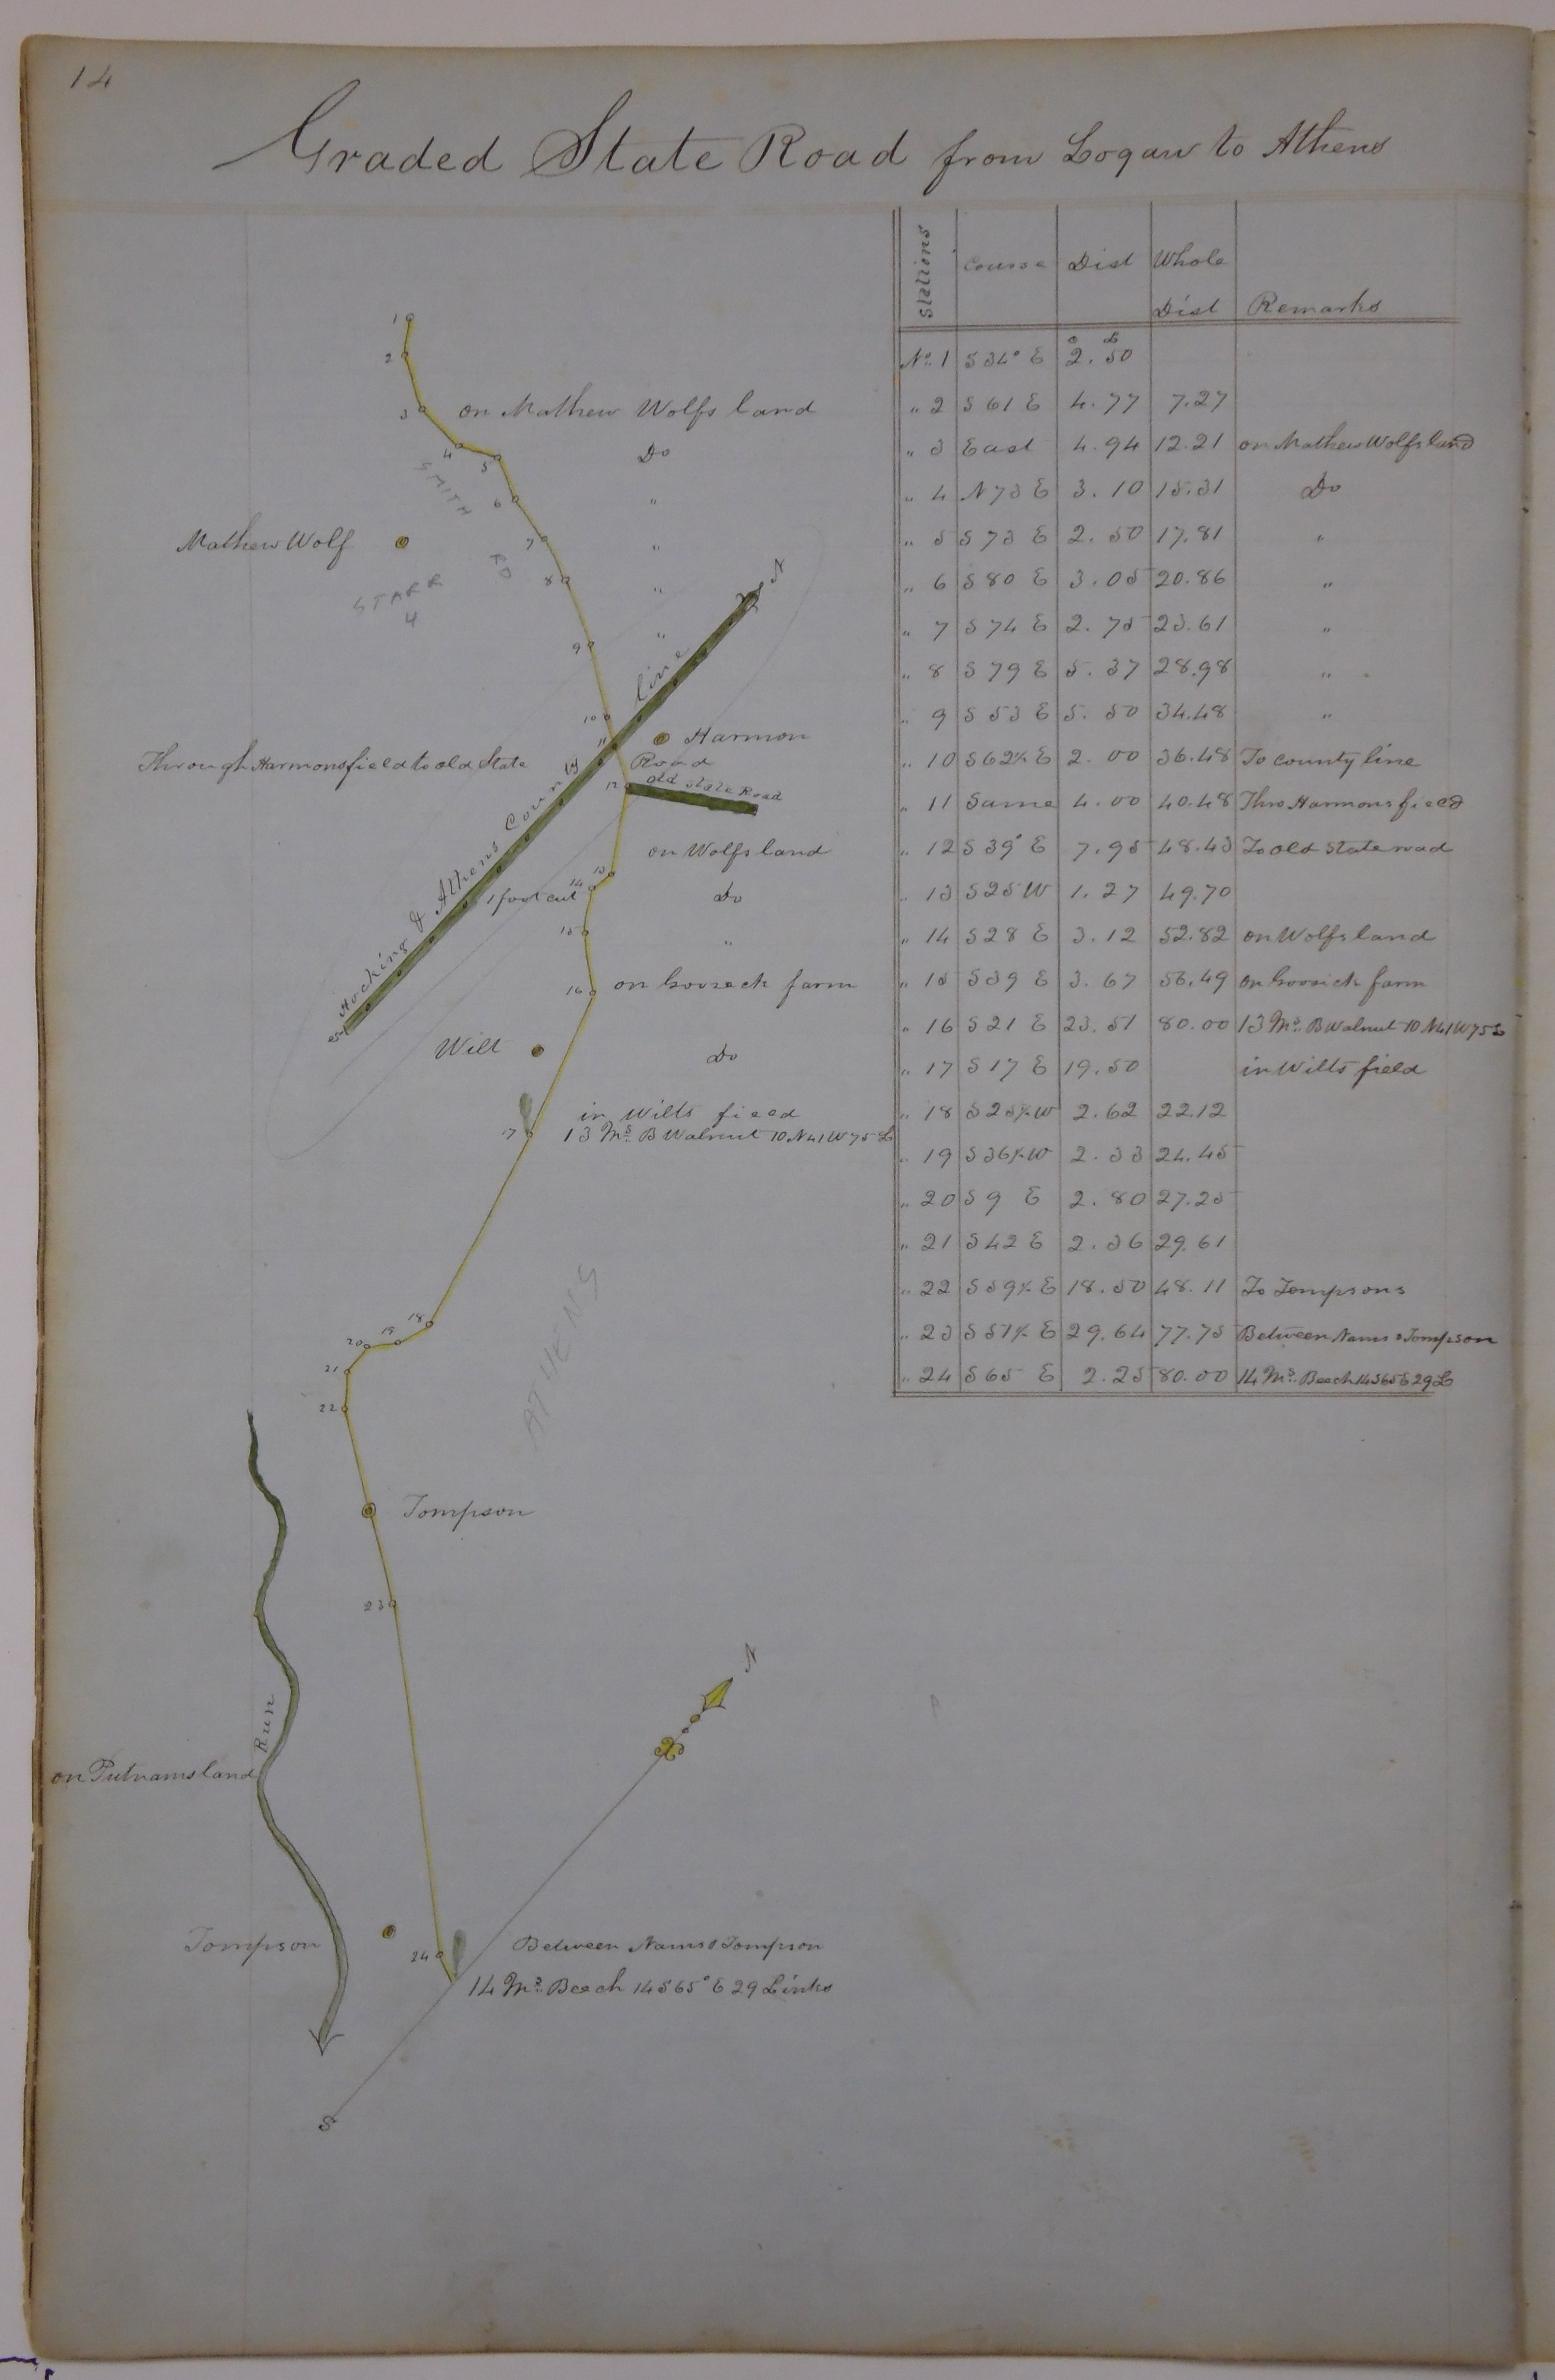 14
Graded State Road from Logan to Athens
Stations Course Dist Whole Dist Remarks
C L
No. 1 S 34° E 2.50
„ 2 S 61 E 4.77 7.27
„ 3 East 4.94 12.21 on Mathew Wolfs land
„ 4 N 73 E 3.10 15.31 Do
„ 5 S 73 E 2.50 17.81 „
„ 6 S 80 E 3.05 20.86 „
„ 7 S 74 E 2.75 23.61 „
„ 8 S 79 E 5.37 28.98 „
„ 9 S 53 E 5.50 34.48 „
„ 10 S 62½ E 2.00 36.48 To county line
„ 11 Same 4.00 40.48 Thro Harmons field
„ 12 S 39° E 7.95 48.43 To old State road
„ 13 S 25 W 1.27 49.70
„ 14 S 28 E 3.12 52.82 on Wolfs land
„ 15 S 39 E 3.67 56.49 on farm
„ 16 S 21 E 23.51 80.00 13 Ms. B Walnut 10 N41W75L
„ 17 S 17 E 19.50 in Wilts field
„ 18 S 25½ W 2.62 22.12
„ 19 S 36½ W 2.33 24.45
„ 20 S 9 E 2.80 27.25
„ 21 S 42 E 2.36 29.61
„ 22 S 59½ E 18.50 48.11 To Tompsons
„ 23 S 57½ E 29.64 77.75 Between & Tompson
„ 24 S 65 E 2.25 80.00 14 Ms. Beech 14 S65E 29 L
1
2
3
on Mathew Wolfs land
4
5
Do
SMITH
6
„
Mathew Wolf
7
„
RD
8
„
STARR
4
N
9
„
line
10
11
Harmon
Through Harmons field to old State
Road
12
old State Road
Hocking & Athens County
on Wolfs land
13
14
1 foot cut
Do
15
„
16
on farm
S
Wilt
Do
in Wilts field
17
13 Ms. B Walnut 10 N41W75L
18
19
20
21
ATHENS
22
Tompson
23
N
Run
on Putnams land
Tompson
24
Between & Tompson
14 Ms. Beech 14 S65°E 29 Links
S